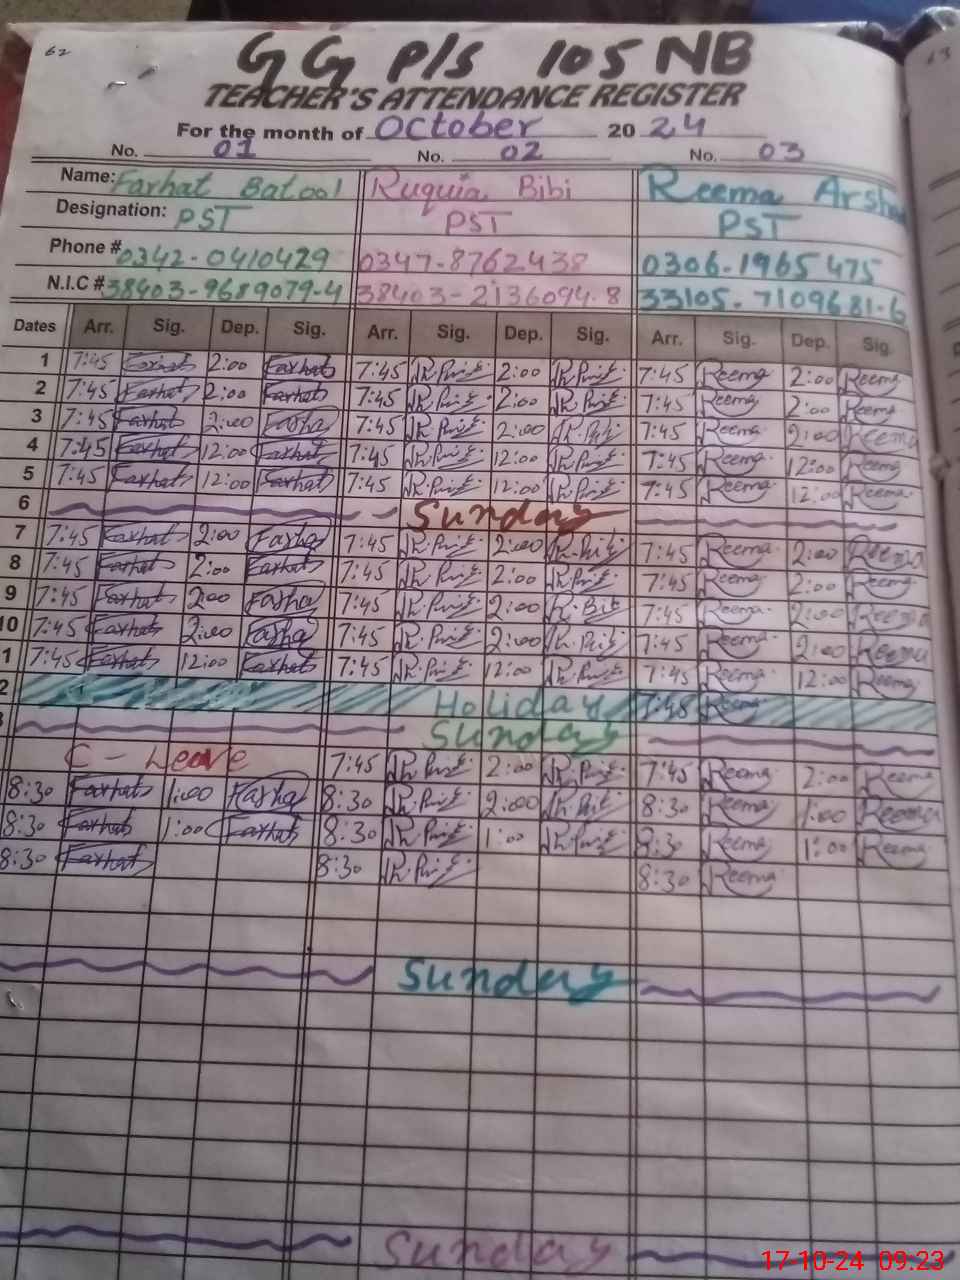 62
63
G G P/S 105 NB
TEACHER'S ATTENDANCE REGISTER
For the month of October 2024
No. 01 No. 02 No. 03
Name: Farhat Batool Ruquia Bibi Reema Arsh
Designation: PST PST PST
Phone # 0342-0410429 0347-8762438 0306-1965475
N.I.C # 38403-9689079-4 38403-2136094-8 33105-7109681-6
Dates Arr. Sig. Dep. Sig. Arr. Sig. Dep. Sig. Arr. Sig. Dep. Sig.
1 7:45 Farhat 2:00 Farhat 7:45 2:00 7:45 Reema 2:00 Reema
2 7:45 Farhat 2:00 Farhat 7:45 2:00 7:45 Reema 2:00 Reema
3 7:45 Farhat 2:00 Farha 7:45 2:00 7:45 Reema 2:00 Reema
4 7:45 Farhat 12:00 Farhat 7:45 12:00 7:45 Reema 12:00 Reema
5 7:45 Farhat 12:00 Farhat 7:45 12:00 7:45 Reema 12:00 Reema
6 Sunday
7 7:45 Farhat 2:00 Farha 7:45 2:00 7:45 Reema 2:00 Reema
8 7:45 Farhat 2:00 Farhat 7:45 2:00 7:45 Reema 2:00 Reema
9 7:45 Farhat 2:00 Farha 7:45 2:00 7:45 Reema 2:00 Reema
10 7:45 Farhat 2:00 Farha 7:45 2:00 7:45 Reema 2:00 Reema
1 7:45 Farhat 12:00 Farhat 7:45 12:00 7:45 Reema 12:00 Reema
2 Holiday 7:45 Reema
3 Sunday
C - Leave 7:45 2:00 7:45 Reema 2:00 Reema
8:30 Farhat 1:00 Farha 8:30 2:00 8:30 Reema 1:00 Reema
8:30 Farhat 1:00 Farhat 8:30 1:00 8:30 Reema 1:00 Reema
8:30 Farhat 8:30 8:30 Reema
Sunday
Sunday
17-10-24 09:23